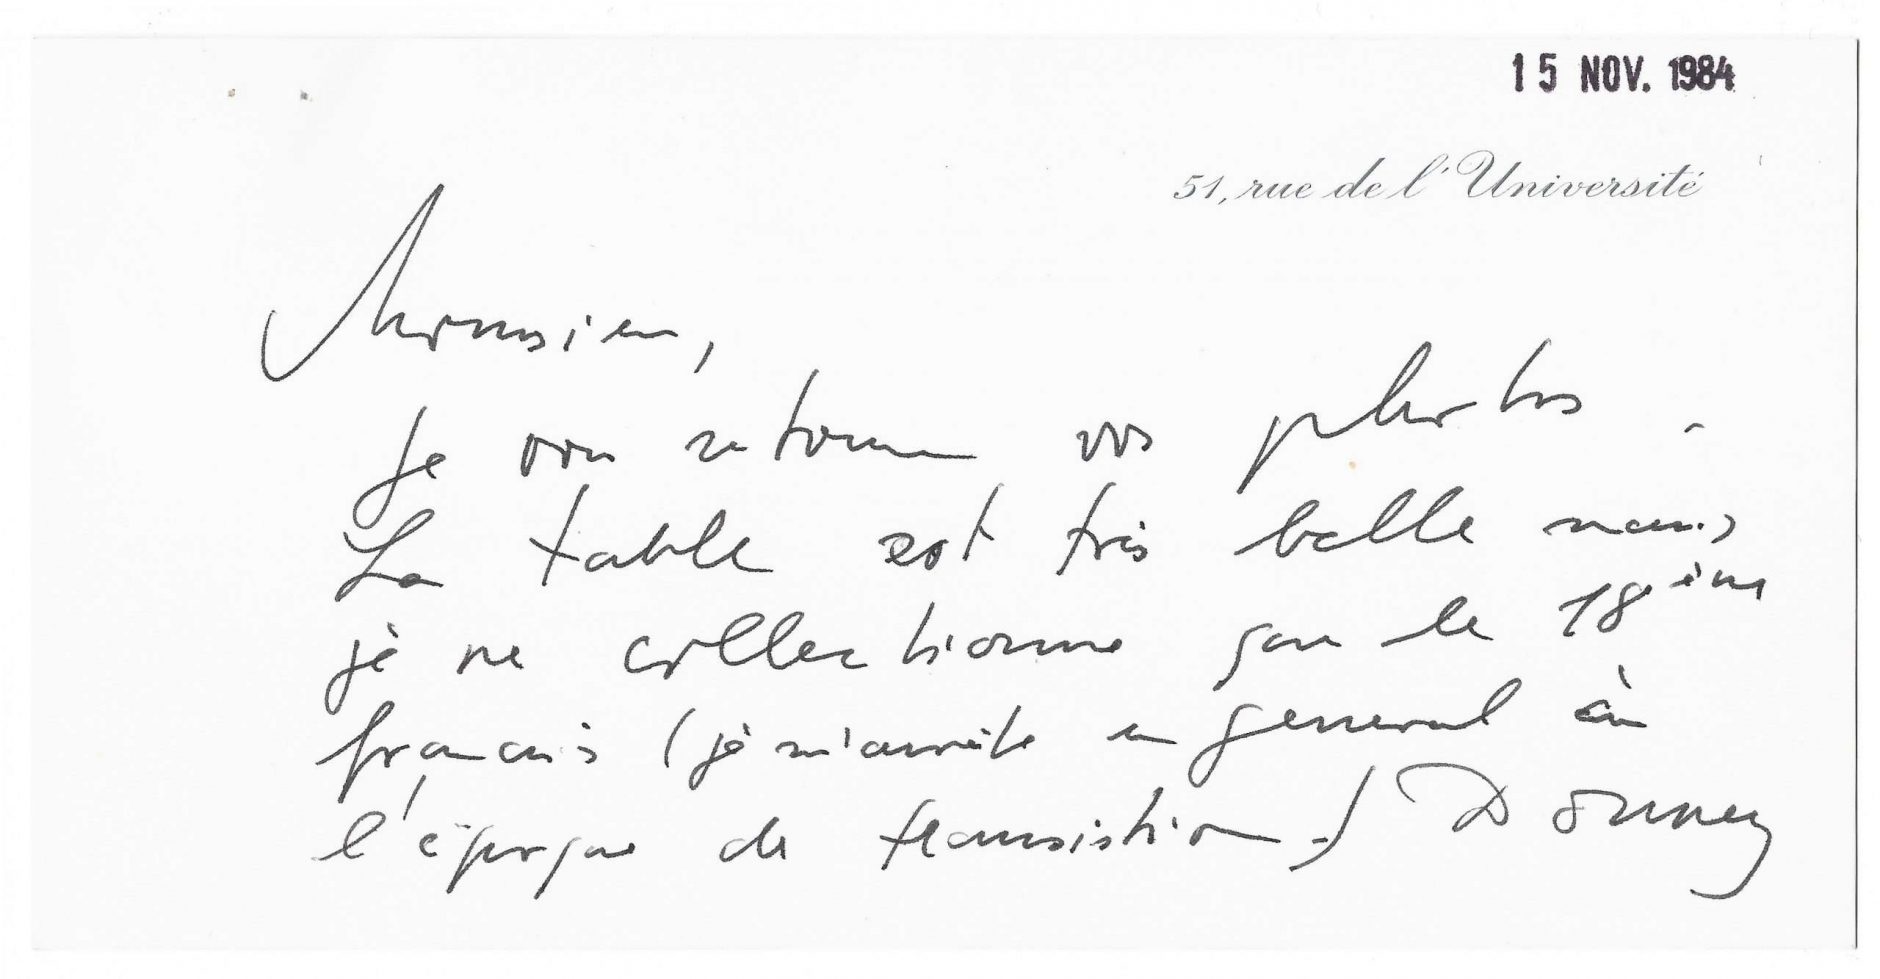 15 NOV. 1984
51, rue de l'Université
Monsieur,
Je vous retourne vos photos.
La table est très belle mais
je ne collectionne que le 18ème
français (je m'arrête en general à
l'époque de transistion.) Donnez